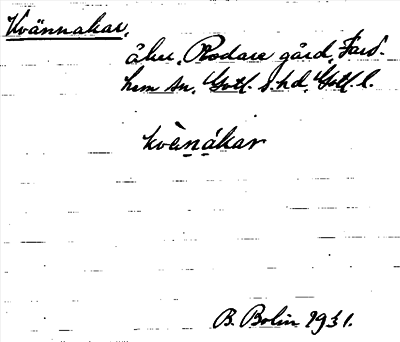 Kvännakar,
åker, Rodare gård, Fard-
hem sn, Gotl. s. hd, Gotl. l.
kvànákar
B. Bolin 1931.